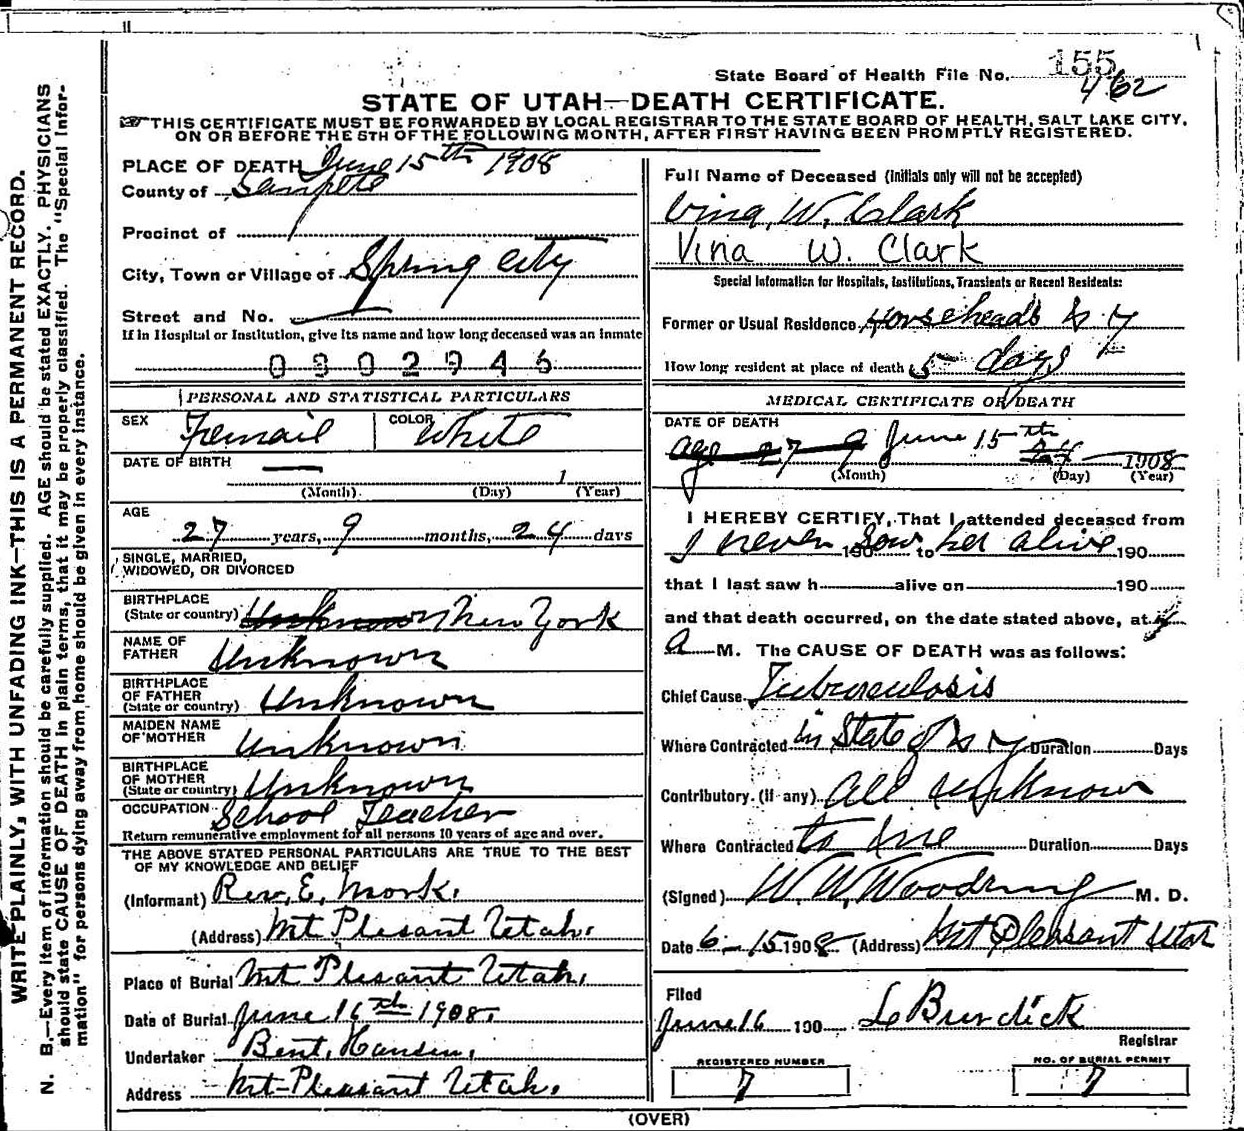 WRITE PLAINLY, WITH UNFADING INK—THIS IS A PERMANENT RECORD.
N. B.—Every item of information should be carefully supplied. AGE should be stated EXACTLY. PHYSICIANS
should state CAUSE OF DEATH in plain terms, that it may be properly classified. The "Special Infor-
mation" for persons dying away from home should be given in every instance.
State Board of Health File No. 155
462
STATE OF UTAH—DEATH CERTIFICATE.
THIS CERTIFICATE MUST BE FORWARDED BY LOCAL REGISTRAR TO THE STATE BOARD OF HEALTH, SALT LAKE CITY,
ON OR BEFORE THE 5TH OF THE FOLLOWING MONTH, AFTER FIRST HAVING BEEN PROMPTLY REGISTERED.
PLACE OF DEATH June 15th 1908
County of Sanpete
Precinct of
City, Town or Village of Spring City
Street and No.
If in Hospital or Institution, give its name and how long deceased was an inmate
0302946
PERSONAL AND STATISTICAL PARTICULARS
SEX Femail COLOR White
DATE OF BIRTH
1
(Month) (Day) (Year)
AGE
27 years, 9 months, 24 days
SINGLE, MARRIED,
WIDOWED, OR DIVORCED
BIRTHPLACE
(State or country) Unknown New York
NAME OF
FATHER Unknown
BIRTHPLACE
OF FATHER
(State or country) Unknown
MAIDEN NAME
OF MOTHER Unknown
BIRTHPLACE
OF MOTHER
(State or country) Unknown
OCCUPATION School Teacher
Return remunerative employment for all persons 10 years of age and over.
THE ABOVE STATED PERSONAL PARTICULARS ARE TRUE TO THE BEST
OF MY KNOWLEDGE AND BELIEF
(Informant) Rev. E. Mork.
(Address) Mt Plesant Utah.
Place of Burial Mt Plesant Utah.
Date of Burial June 16th 1908.
Undertaker Bent. Hansen.
Address Mt-Pleasant Utah.
Full Name of Deceased (Initials only will not be accepted)
Vina, W. Clark
Vina W. Clark
Special Information for Hospitals, Institutions, Transients or Recent Residents:
Former or Usual Residence Horseheads N Y
How long resident at place of death 5 days
MEDICAL CERTIFICATE OF DEATH
DATE OF DEATH
age 27 9 June 15th 24 1908
(Month) (Day) (Year)
I HEREBY CERTIFY, That I attended deceased from
I never 190 saw to her alive 190
that I last saw h alive on 190
and that death occurred, on the date stated above, at 4
A M. The CAUSE OF DEATH was as follows:
Chief Cause Tuberculosis
Where Contracted in State of N Y Duration Days
Contributory (if any) all unknown
Where Contracted to me Duration Days
(Signed) W. W. Woodring M. D.
Date 6-15 1908 (Address) Mt Pleasant Utah
Filed
June 16 190 L Burdick
Registrar
REGISTERED NUMBER NO. OF BURIAL PERMIT
7 7
(OVER)